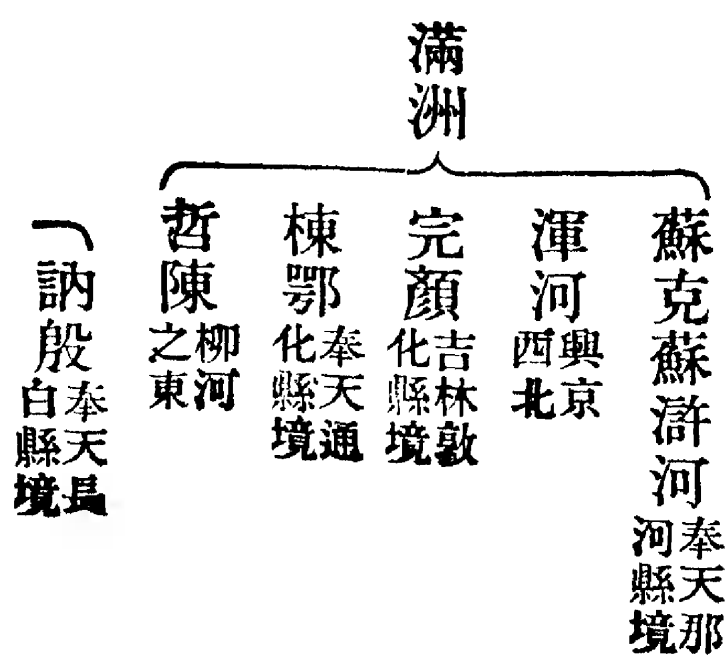 滿洲
蘇克蘇滸河
奉天那
河縣境
渾河
興京
西北
完顏
吉林敦
化縣境
棟鄂
奉天通
化縣境
哲陳
柳河
之東
訥殷
奉天長
白縣境